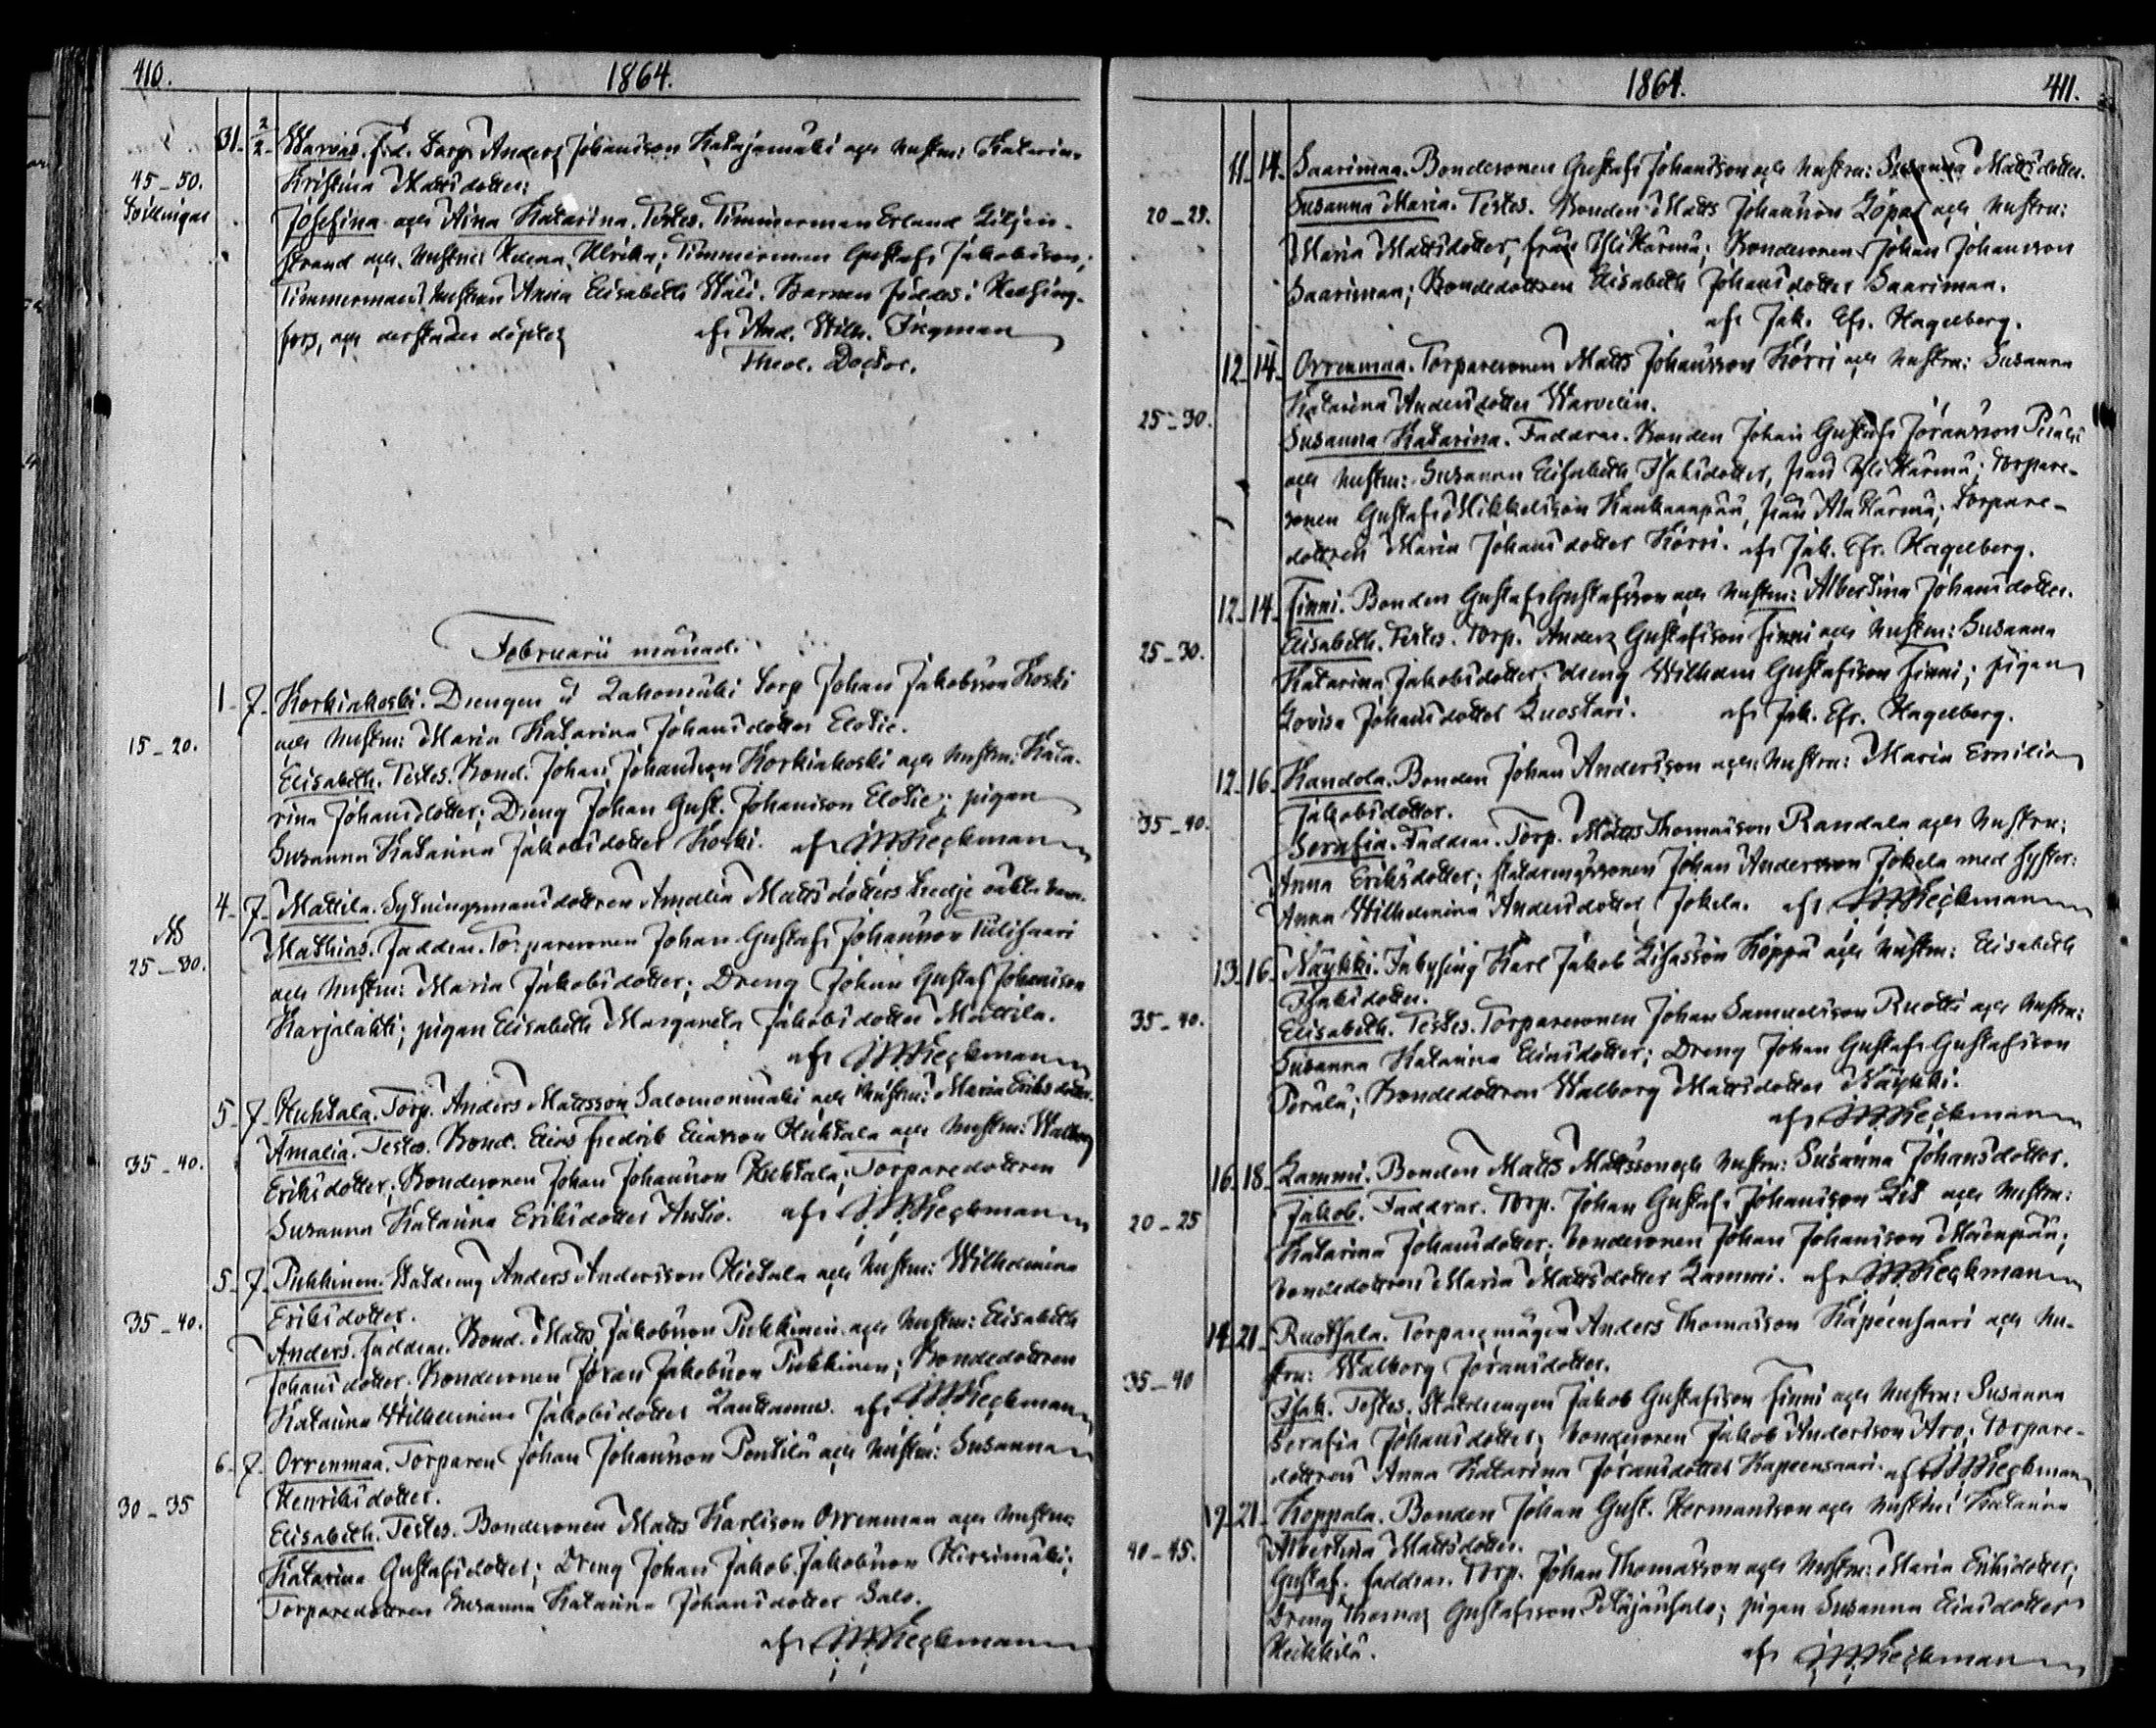 410.
1864.
31. 2/2. Warvas. f.d. Torp. Anders Johansson Katajamäki och hustru: Katarina
45-50.
Kristina Mattsdotter.
Tvillingar
Josefina och Aina Katarina. Testes. Timmerman Erland Liljen-
strand och hustru: Helena Ulrika; Timmerman Gustaf Jakobsson;
Timmermans hustrun Anna Elisabeth Wali. Barnen föddes i Helsing-
fors, och derstädes döptes af And. Wilh. Ingman
Theol. Doctor.
Februarii månad.
1. 7. Korkiakoski. Drengen å Lahomäki torp Johan Jakobsson Koski
och hustru: Maria Katarina Johansdotter Elotie.
15-20.
Elisabeth. Testes. Bond. Johan Johansson Korkiakoski och hustru: Kata-
rina Johansdotter; Dreng Johan Gust. Johansson Elotie; pigan
Susanna Katarina Jakobsdotter Koski. af Heckman
4. 7. Mattila. Sytningsmansdottren Amalia Mattsdotters tredje oäkta barn.
Mathias. Faddrar. Torparesonen Johan Gustaf Johansson Tulisaari
25-30.
och hustru: Maria Jakobsdotter; Dreng Johan Gustaf Johansson
Karjalahti; pigan Elisabeth Margareta Jakobsdotter Mattila.
af Heckman
5. 7. Huhtala. Torp. Anders Mattsson Salomonmäki och hustru: Maria Eriksdotter.
Amalia. Testes. Bond. Elias Fredrik Eliasson Huhtala och hustru: Walborg
35-40.
Eriksdotter; Bondesonen Johan Johansson Huhtala; Torparedottren
Susanna Katarina Eriksdotter Antio. af Heckman
5. 7. Pukkinen. Statdreng Anders Andersson Hietala och hustru: Wilhelmina
Eriksdotter.
35-40.
Anders. Faddrar. Bond. Matts Jakobsson Pukkinen och hustru: Elisabeth
Johansdotter. Bondesonen Jöran Jakobsson Pukkinen; Bondedottren
Katarina Wilhelmina Jakobsdotter Lanttamus. af Heckman
6. 7. Orrenmaa. Torparen Johan Johansson Pentilä och hustru: Susanna
Henriksdotter.
30-35
Elisabeth. Testes. Bondesonen Matts Karlsson Orrenmaa och hustru:
Katarina Gustafsdotter; Dreng Johan Jakob Jakobsson Hirsimäki;
Torparedottren Susanna Katarina Johansdotter Salo.
af Heckman
1864.
411.
11. 14. Saarimaa. Bondesonen Gustaf Johansson och hustru: Susanna Mattsdotter.
Susanna Maria. Testes. Bonden Matts Johansson Löpas och hustru:
20-25.
Maria Mattsdotter, från Ylihärmä; Bondesonen Johan Johansson
Saarimaa; Bondedottren Elisabeth Johansdotter Saarimaa.
af Jak. Efr. Hagelberg.
12. 14. Orrenmaa. Torparesonen Matts Johansson Körri och hustru: Susanna
Katarina Andersdotter Warvelin.
25-30.
Susanna Katarina. Faddrar. Bonden Johan Gustaf Jöransson
och hustru: Susanna Elisabeth Isaksdotter, från Ylihärmä; Torpare-
sonen Gustaf Mikkelsson Kankaanpää, från Alahärmä; Torpare-
dottren Maria Johansdotter Körri. af Jak. Efr. Hagelberg.
12. 14. Finni. Bonden Gustaf Gustafsson och hustru: Albertina Johansdotter.
Elisabeth. Testes. Torp. Anders Gustafsson Finni och hustru: Susanna
25-30.
Katarina Jakobsdotter; dreng Wilhelm Gustafsson Finni; pigan
Lovisa Johansdotter Luostari. af Jak. Efr. Hagelberg.
12. 16. Kandola. Bonden Johan Andersson och hustru: Maria Emilia
Jakobsdotter.
35-40.
Serafia. Faddrar. Torp. Matts Thomasson Randala och hustru:
Anna Eriksdotter; statdrengssonen Johan Andersson Jokela med syster:
Anna Wilhelmina Andersdotter Jokela. af Heckman
13. 16. Näykki. Inhysing Karl Jakob Köppä och hustru: Elisabeth
Isaksdotter.
35-40.
Elisabeth. Testes. Torparesonen Johan Samuelsson Ruotti och hustru:
Susanna Katarina Eliasdotter; Dreng Johan Gustaf Gustafsson
Perälä; Bondedottren Walborg Mattsdotter Näykki.
af Heckman
16. 18. Lammi. Bonden Matts Mattsson och hustru: Susanna Johansdotter.
Jakob. Faddrar. Torp. Johan Gustaf Johansson och hustru:
20-25
Katarina Johansdotter; bondesonen Johan Johansson Mäenpää;
bondedottren Maria Mattsdotter Lammi. af Heckman
14. 21. Ruotsala. Torparemågen Anders Thomasson Käpeensaari och hu-
stru: Walborg Jöransdotter.
35-40
Isak. Testes. Statdrengen Jakob Gustafsson Finni och hustru: Susanna
Serafia Johansdotter; bondesonen Jakob Andersson Aro; Torpare-
dottren Anna Katarina Jöransdotter Käpeensaari. af Heckman
19. 21. Koppala. Bonden Johan Gust. Hermansson och hustru: Katarina
Albertina Mattsdotter.
40-45.
Gustaf. Faddrar. Torp. Johan Thomasson och hustru: Maria Eriksdotter;
Dreng Thomas Gustafsson Petäjänsalo; pigan Susanna Eliasdotter
Heikkilä. af Heckman